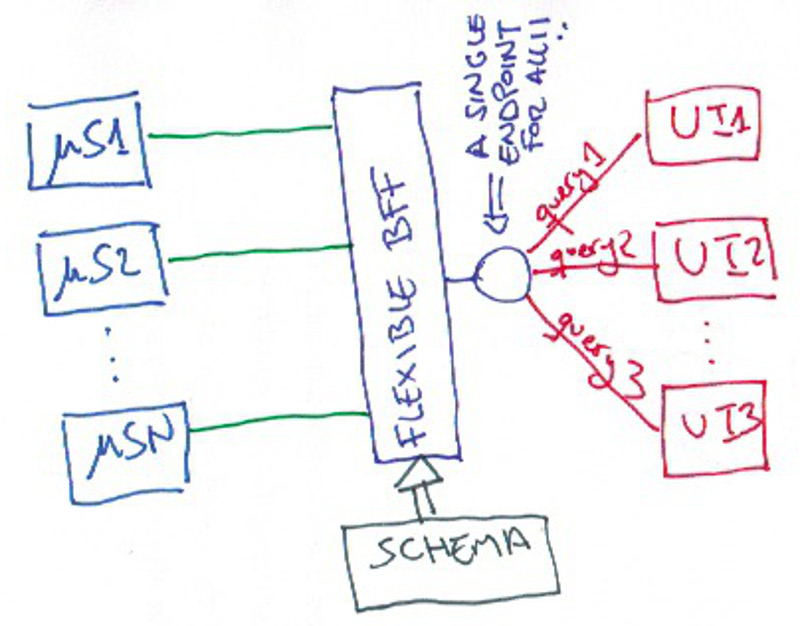 μS1
μS2
μSN
FLEXIBLE BFF
SCHEMA
A SINGLE
ENDPOINT
FOR ALL!!
query1
query2
query3
UI1
UI2
UI3